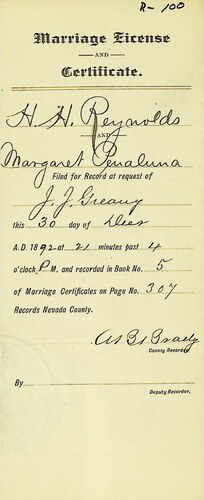 R - 100
Marriage License
AND
Certificate.
H. H. Reynolds
AND
Margaret Penaluna
Filed for Record at request of
J. J. Greany
this 30 day of Decr
A.D. 1892 at 21 minutes past 4
o'clock, P.M. and recorded in Book No. 5
of Marriage Certificates on Page No. 307
Records Nevada County.
Brady
County Recorder.
By
Deputy Recorder.